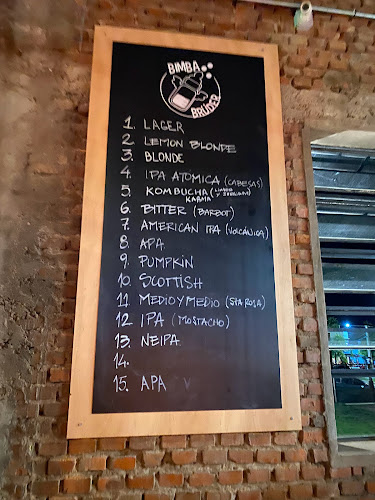 BIMBA
BRÜDER
1. LAGER
2 LEMON BLONDE
3. BLONDE
4. IPA ATOMICA (CABEZAS)
5. KOMBUCHA (LIMON Y JENGIBRE)
KARMA
6. BITTER (BARBOT)
7. AMERICAN IPA (VOLCÁNICA)
8. APA.
9. PUMPKIN
10. SCOTTISH
11. MEDIO Y MEDIO (STA ROSA)
12 IPA (MOSTACHO)
13. NEIPA.
14.
15. APA